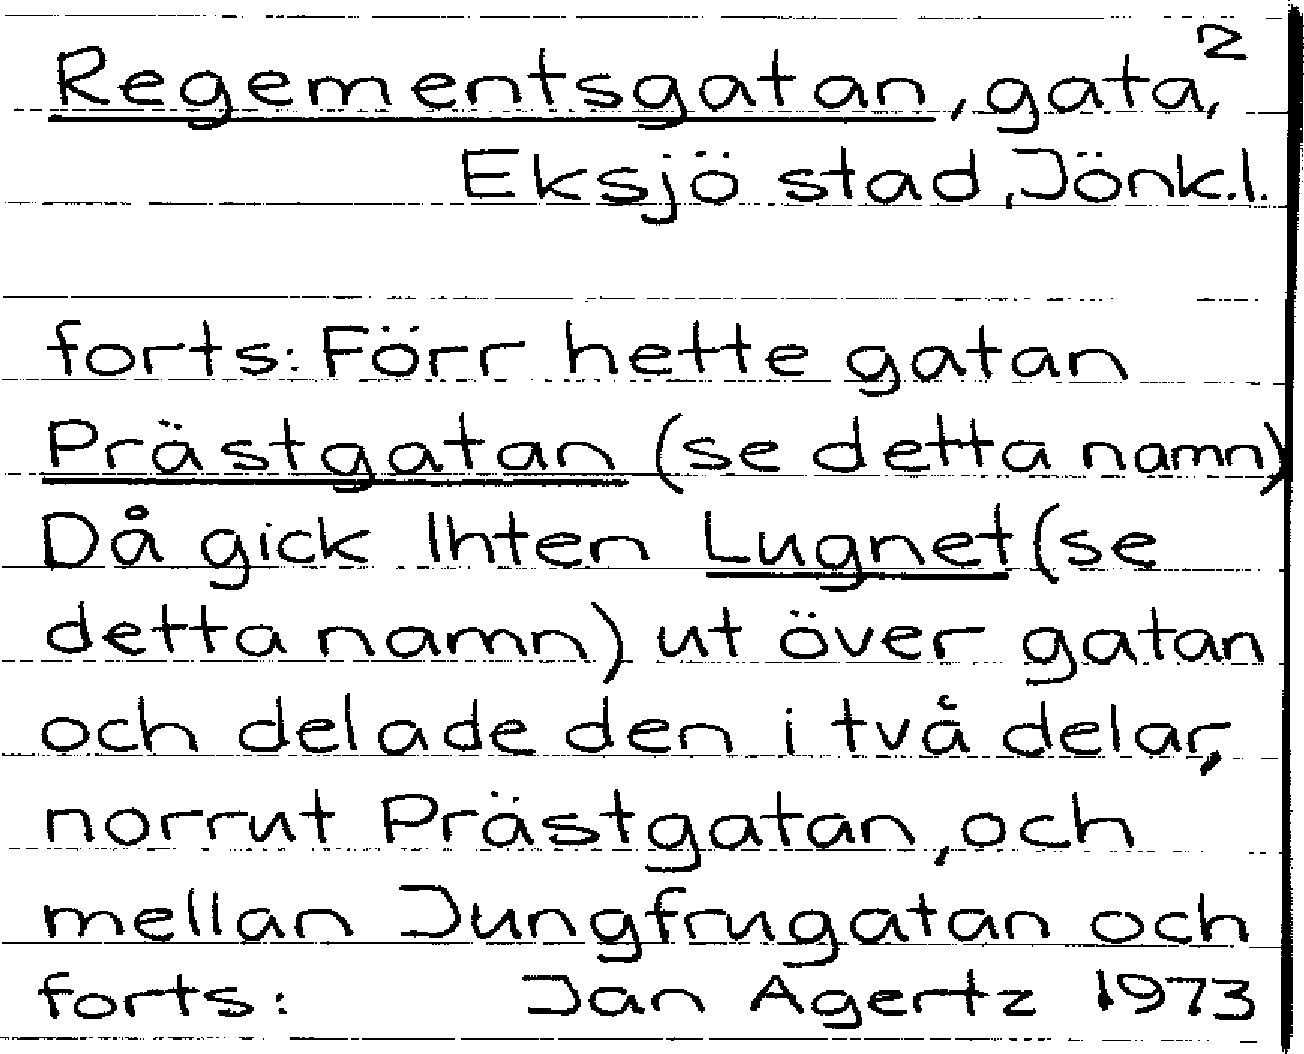 Regementsgatan, gata, 2
Eksjö stad, Jönk.l.
forts: Förr hette gatan
Prästgatan (se detta namn)
Då gick Ihten Lugnet (se
detta namn) ut över gatan
och delade den i två delar,
norrut Prästgatan, och
mellan Jungfrugatan och
forts: Jan Agertz 1973